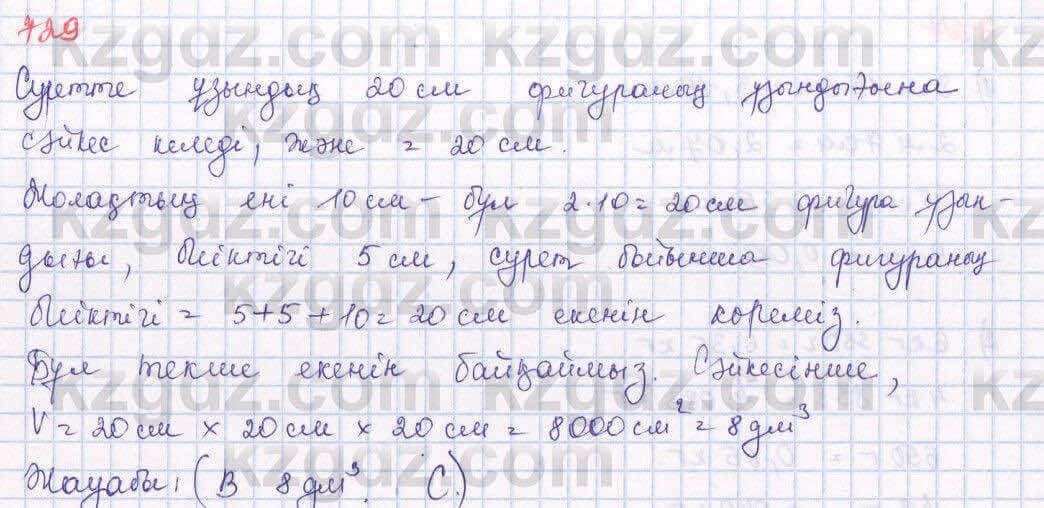 729
Суретте ұзындық 20 см фигураның ұзындығына
сәйкес келеді, және = 20 см.
Жолақтың ені 10 см - бұл 2·10 = 20 см фигура ұзын-
дығы, биіктігі 5 см, сурет бойынша фигураның
биіктігі = 5+5+10 = 20 см екенін көреміз.
Бұл текше екенін байқаймыз. Сәйкесінше,
V = 20 см × 20 см × 20 см = 8000 см² = 8 дм³
Жауабы: (В 8 дм³. С.)
kzgdz.com